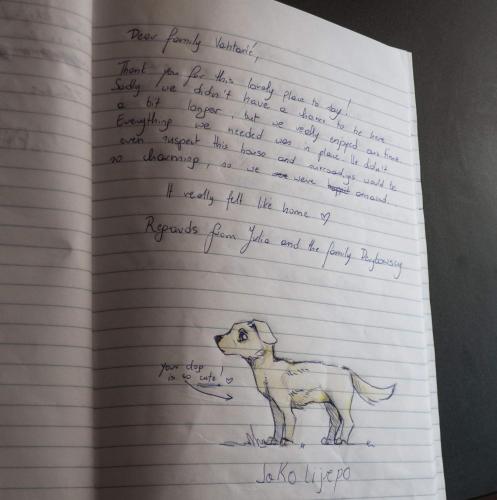 Dear family Vahtarić,
Thank you for this lovely place to stay!
Sadly we didn't have a chance to be here
a bit longer, but we really enjoyed our time.
Everything we needed was in place. We didn't
even suspect this house and surroundings would be
so charming, so we were amazed.
It really felt like home ♡
Regards from Julia and the family
your dog
is so cute! ♡
Jako lijepo